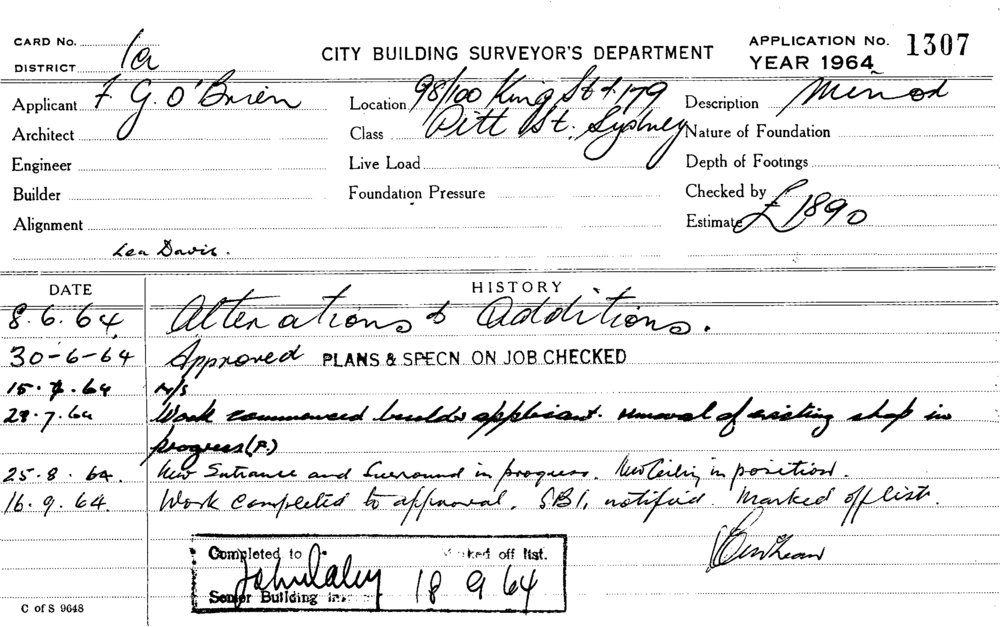 CARD No.
DISTRICT 1a
CITY BUILDING SURVEYOR'S DEPARTMENT
APPLICATION No. 1307
YEAR 1964
Applicant F G. O'Brien
Location 98/100 King St & 179
Description Minor
Architect
Class Pitt St. Sydney
Nature of Foundation
Engineer
Live Load
Depth of Footings
Builder
Foundation Pressure
Checked by
Alignment
Estimate £1890
Len Davis.
DATE HISTORY
8.6.64 Alterations & Additions.
30-6-64 Approved PLANS & SPECN. ON JOB CHECKED
15.7.64 N/S
28.7.64 Work commenced builder applicant. removal of existing shop in
progress (P.)
25.8.64. New Entrance and Surround in progress. New Ceiling in position.
16.9.64. Work completed to approval. SBI, notified. Marked off list.
Completed to Marked off list.
John Daley 18 9 64
Senior Building
C of S 9648